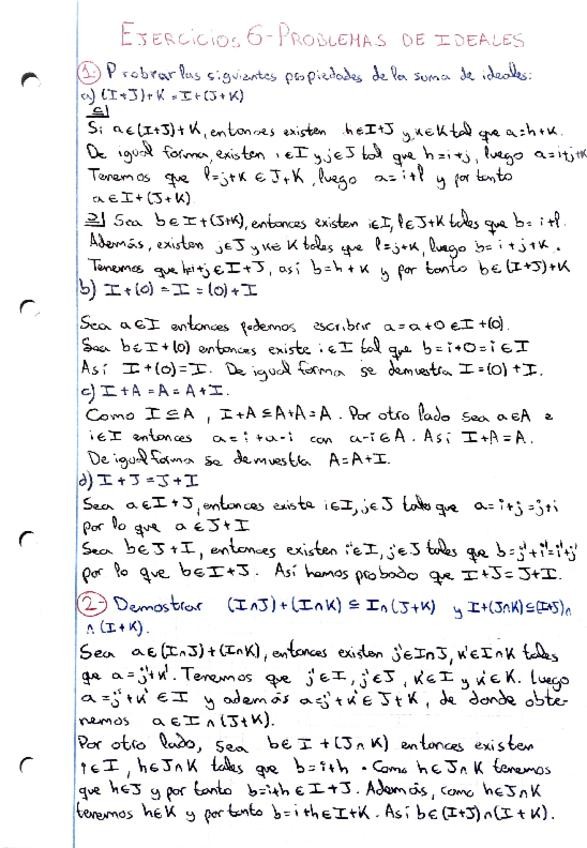 EJERCICIOS 6-PROBLEMAS DE IDEALES
1. Probrar las siguientes propiedades de la suma de ideales:
a) (I+J)+K = I+(J+K)
⊆]
Si a∈(I+J)+K, entonces existen h∈I+J y k∈K tal que a=h+k.
De igual forma, existen i∈I y j∈J tal que h=i+j, luego a=i+j+k
Tenemos que l=j+k ∈ J+K, luego a=i+l y por tanto
a∈I+(J+K).
⊇] Sea b∈I+(J+K), entonces existen i∈I, l∈J+K tales que b=i+l.
Además, existen j∈J y k∈K tales que l=j+k, luego b=i+j+k.
Tenemos que h=i+j∈I+J, así b=h+k y por tanto b∈(I+J)+K
b) I+(0)=I=(0)+I
Sea a∈I entonces podemos escribrir a=a+0∈I+(0).
Sea b∈I+(0) entonces existe i∈I tal que b=i+0=i∈I
Así I+(0)=I. De igual forma se demuestra I=(0)+I.
c) I+A=A=A+I.
Como I⊆A, I+A⊆A+A=A. Por otro lado sea a∈A e
i∈I entonces a=i+a-i con a-i∈A. Así I+A=A.
De igual forma se demuestra A=A+I.
d) I+J=J+I
Sea a∈I+J, entonces existe i∈I, j∈J tales que a=i+j=j+i
por lo que a∈J+I
Sea b∈J+I, entonces existen i'∈I, j'∈J tales que b=j'+i'=i'+j'
por lo que b∈I+J. Así hemos probado que I+J=J+I.
2- Demostrar (I∩J)+(I∩K)⊆I∩(J+K) y I+(J∩K)⊆(I+J)∩
∩(I+K).
Sea a∈(I∩J)+(I∩K), entonces existen j'∈I∩J, k'∈I∩K tales
que a=j'+k'. Tenemos que j'∈I, j'∈J, k'∈I y k'∈K. Luego
a=j'+k'∈I y además a=j'+k'∈J+K, de donde obte-
nemos a∈I∩(J+K).
Por otro lado, sea b∈I+(J∩K) entonces existen
i∈I, h∈J∩K tales que b=i+h. Como h∈J∩K tenemos
que h∈J y por tanto b=i+h∈I+J. Además, como h∈J∩K
tenemos h∈K y por tanto b=i+h∈I+K. Así b∈(I+J)∩(I+K).